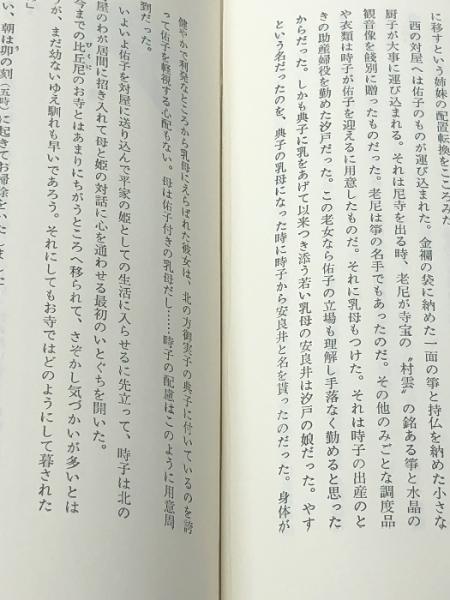 に移すという姉妹の配置転換をこころみた
西の対屋へは佑子のものが運び込まれた。金襴の袋に納めた一面の箏と持仏を納めた小さな
厨子が大事に運び込まれる。それは尼寺を出る時、老尼が寺宝の〝村雲〟の銘ある箏と水晶の
観音像を餞別に贈ったものだった。老尼は箏の名手でもあったのだ。その他のみごとな調度品
や衣類は時子が佑子を迎えるに用意したものだ。それに乳母もつけた。それは時子の出産のと
きの助産婦役を勤めた汐戸だった。この老女なら佑子の立場も理解し手落なく勤めると思った
からだった。しかも典子に乳をあげて以来つき添う若い乳母の安良井は汐戸の娘だった。やす
という名だったのを、典子の乳母になった時に時子から安良井と名を貰ったのだった。身体が
健やかで利発なところから乳母にえらばれた彼女は、北の方御実子の典子に付いているのを誇
って佑子を軽視する心配もない。母は佑子付きの乳母だし……時子の配慮はこのように用意周
到だった。
いよいよ佑子を対屋に送り込んで平家の姫としての生活に入らせるに先立って、時子は北の
屋のわが居間に招き入れて母と姫の対話に心を通わせる最初のいとぐちを開いた。
今までの比丘尼のお寺とはあまりにちがうところへ移られて、さぞかし気づかいが多いとは
が、まだ幼ないゆえ馴れも早いであろう。それにしてもお寺ではどのようにして暮された
」
い、朝は卯の刻(五時)に起きてお掃除をいたしました